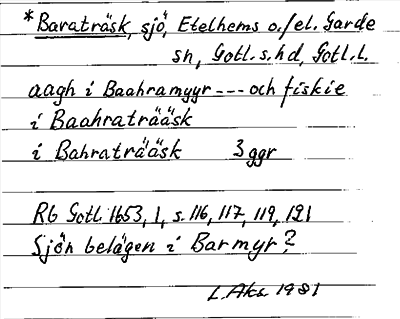 *Baraträsk, sjö, Etelhems o./el. Garde
sn, Gotl. s. hd, Gotl. l.
aagh i Baahramyyr --- och fiskie
i Baahraträäsk
i Bahraträäsk 3 ggr
RG Gotl 1653, 1, s. 116, 117, 119, 121
Sjön belägen i Barmyr?
1981